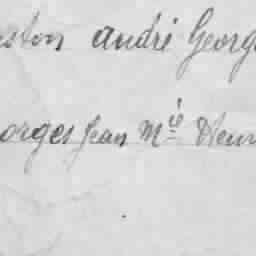 ston André Georg
orges Jean Mie Henr